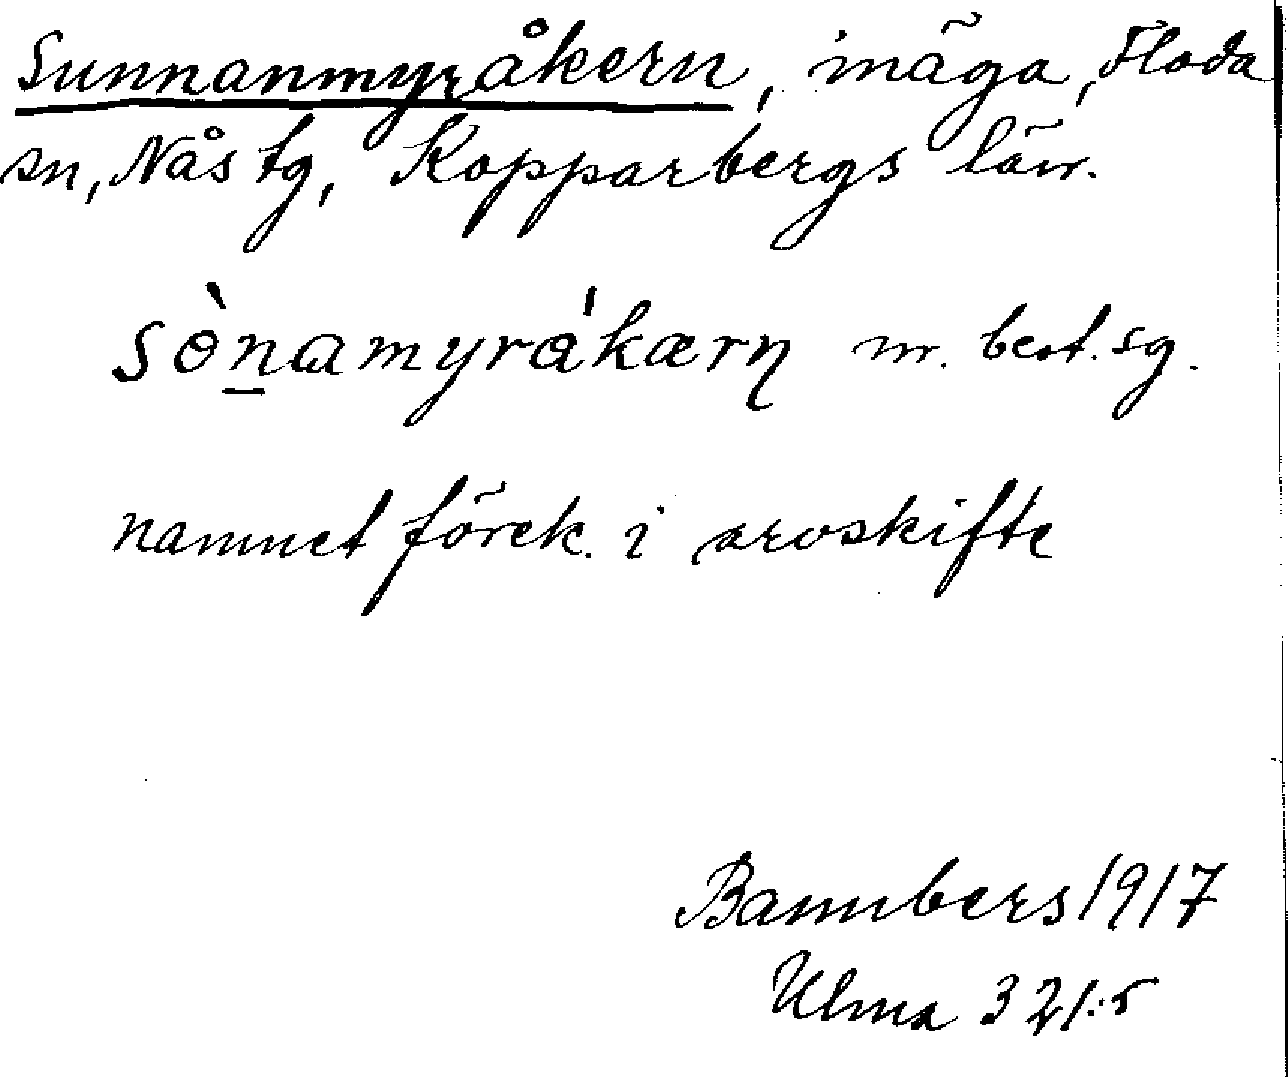 Sunnanmyråkern, inäga, Floda
sn, Nås tg, Kopparbergs län.
sò̱namyrákærṇ m. best. sg.
namnet förek. i arvskifte
Bannbers 1917
Ulma 321:5